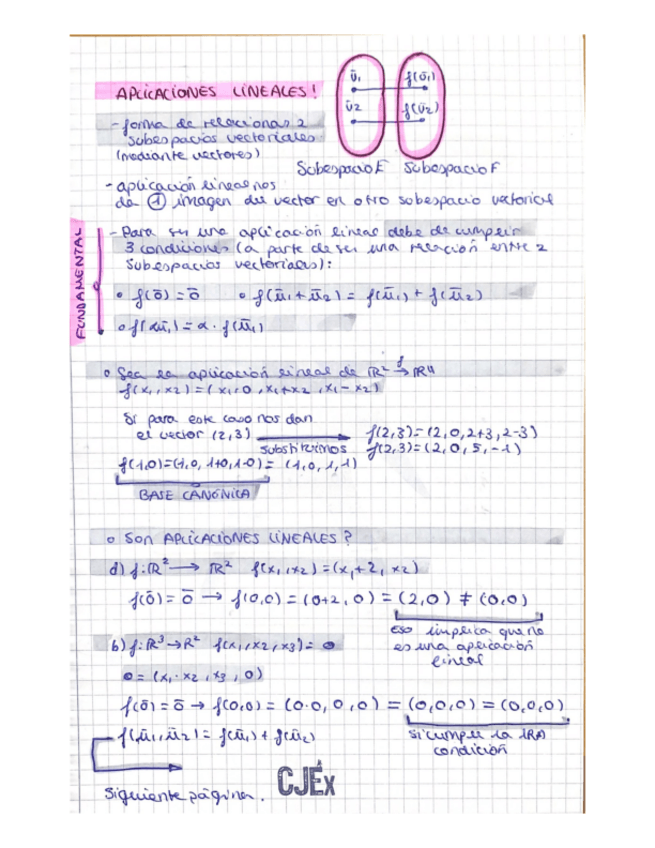 APLICACIONES LINEALES!
ū₁ f(ū₁)
ū₂ f(ū₂)
Subespacio E Subespacio F
- forma de relacionar 2
subespacios vectoriales
(mediante vectores)
- aplicación lineal nos
da ① imagen du vector en otro subespacio vectorial
FUNDAMENTAL
- Para ser una aplicación lineal debe de cumplir
3 condiciones (a parte de ser una relación entre 2
subespacios vectoriales):
• f(ō) = ō • f(ū₁ + ū₂) = f(ū₁) + f(ū₂)
• f(αū₁) = α · f(ū₁)
• Sea la aplicación lineal de ℝ² →f ℝ⁴
f(x₁, x₂) = (x₁, 0, x₁+x₂, x₁ - x₂)
Si para este caso nos dan
el vector (2,3) → f(2,3) = (2,0,2+3,2-3)
substituimos f(2,3) = (2,0,5,-1)
f(1,0) = (1,0,1+0,1-0) = (1,0,1,1)
BASE CANÓNICA
• SON APLICACIONES LINEALES?
d) f: ℝ² → ℝ² f(x₁, x₂) = (x₁+2, x₂)
f(ō) = ō → f(0,0) = (0+2, 0) = (2,0) ≠ (0,0)
eso implica que no
es una aplicación
lineal
b) f: ℝ³ → ℝ² f(x₁, x₂, x₃) = 0
0 = (x₁ · x₂, x₃, 0)
f(ō) = ō → f(0,0) = (0·0, 0, 0) = (0,0,0) = (0,0,0)
si cumple la 1RA
condición
f(ū₁, ū₂) = f(ū₁) + f(ū₂)
Siguiente página.
CJEx